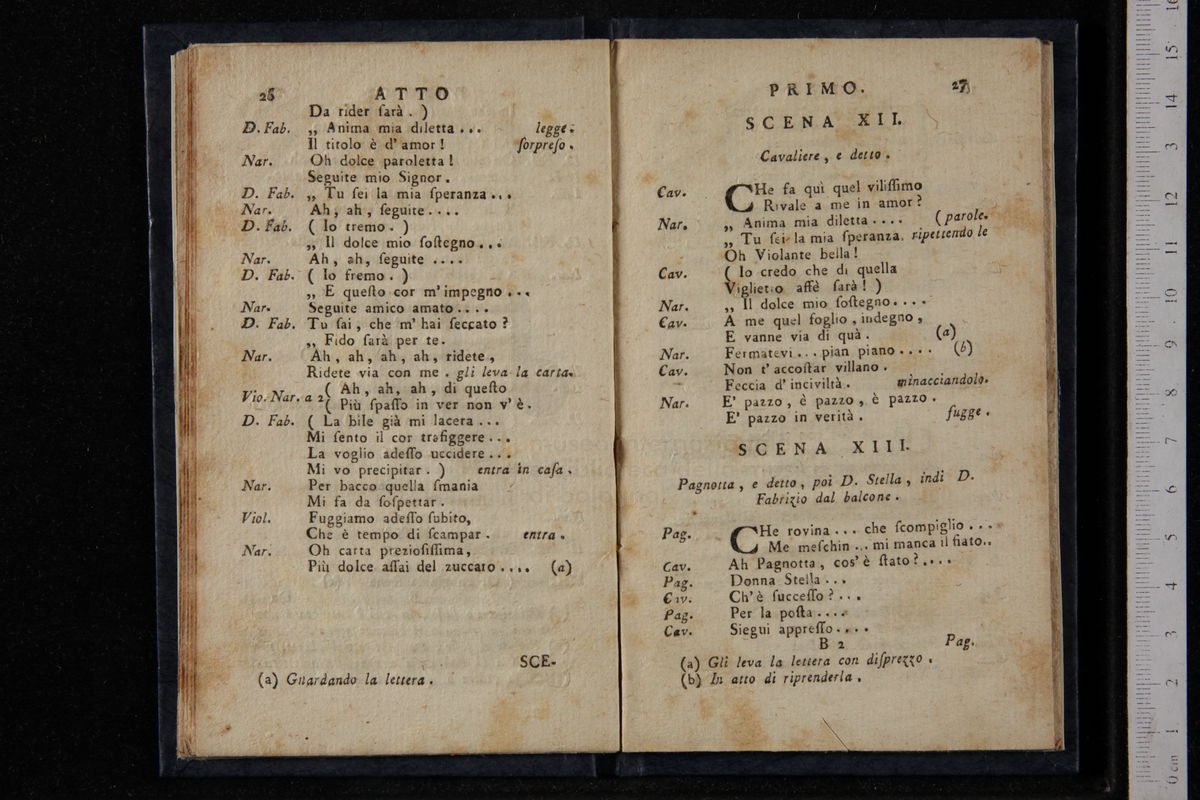 26 ATTO
Da rider ſarà . )
D. Fab. „ Anima mia diletta ... legge.
Il titolo è d' amor ! ſorpreſo .
Nar. Oh dolce paroletta !
Seguite mio Signor .
D. Fab. „ Tu ſei la mia ſperanza ...
Nar. Ah , ah , ſeguite ....
D. Fab. ( Io tremo . )
„ Il dolce mio ſoſtegno ...
Nar. Ah , ah, ſeguite ....
D. Fab. ( Io fremo . )
„ E queſto cor m' impegno ...
Nar. Seguite amico amato ....
D. Fab. Tu ſai , che m' hai ſeccato ?
„ Fido ſarà per te .
Nar. Ah , ah , ah , ah , ridete ,
Ridete via con me . gli leva la carta.
Vio. Nar. a 2 ( Ah , ah , ah , di queſto
( Più ſpaſſo in ver non v' è .
D. Fab. ( La bile già mi lacera ...
Mi ſento il cor trafiggere ...
La voglio adeſſo uccidere ...
Mi vo precipitar . ) entra in caſa .
Nar. Per bacco quella ſmania
Mi fa da ſoſpettar .
Viol. Fuggiamo adeſſo ſubito,
Che è tempo di ſcampar . entra .
Nar. Oh carta prezioſiſſima,
Più dolce aſſai del zuccaro .... (a)
SCE-
(a) Guardando la lettera .
PRIMO. 27
SCENA XII.
Cavaliere , e detto .
Cav. CHe fa quì quel viliſſimo
Rivale a me in amor ?
Nar. „ Anima mia diletta .... ( parole.
„ Tu ſei la mia ſperanza. ripettendo le
Oh Violante bella !
Cav. ( Io credo che di quella
Viglietto affè ſarà ! )
Nar. „ Il dolce mio ſoſtegno ....
Cav. A me quel foglio , indegno ,
E vanne via di quà . (a)
Nar. Fermatevi ... pian piano .... (b)
Cav. Non t' accoſtar villano .
Feccia d' inciviltà . minacciandolo.
Nar. E' pazzo , è pazzo , è pazzo .
E' pazzo in verità . fugge .
SCENA XIII.
Pagnotta , e detto , poi D. Stella , indi D.
Fabrizio dal balcone .
Pag. CHe rovina ... che ſcompiglio ...
Me meſchin ... mi manca il fiato..
Cav. Ah Pagnotta , cos' è ſtato ? ....
Pag. Donna Stella ...
Cav. Ch' è ſucceſſo ? ...
Pag. Per la poſta ....
Cav. Siegui appreſſo ....
B 2 Pag.
(a) Gli leva la lettera con diſprezzo .
(b) In atto di riprenderla .